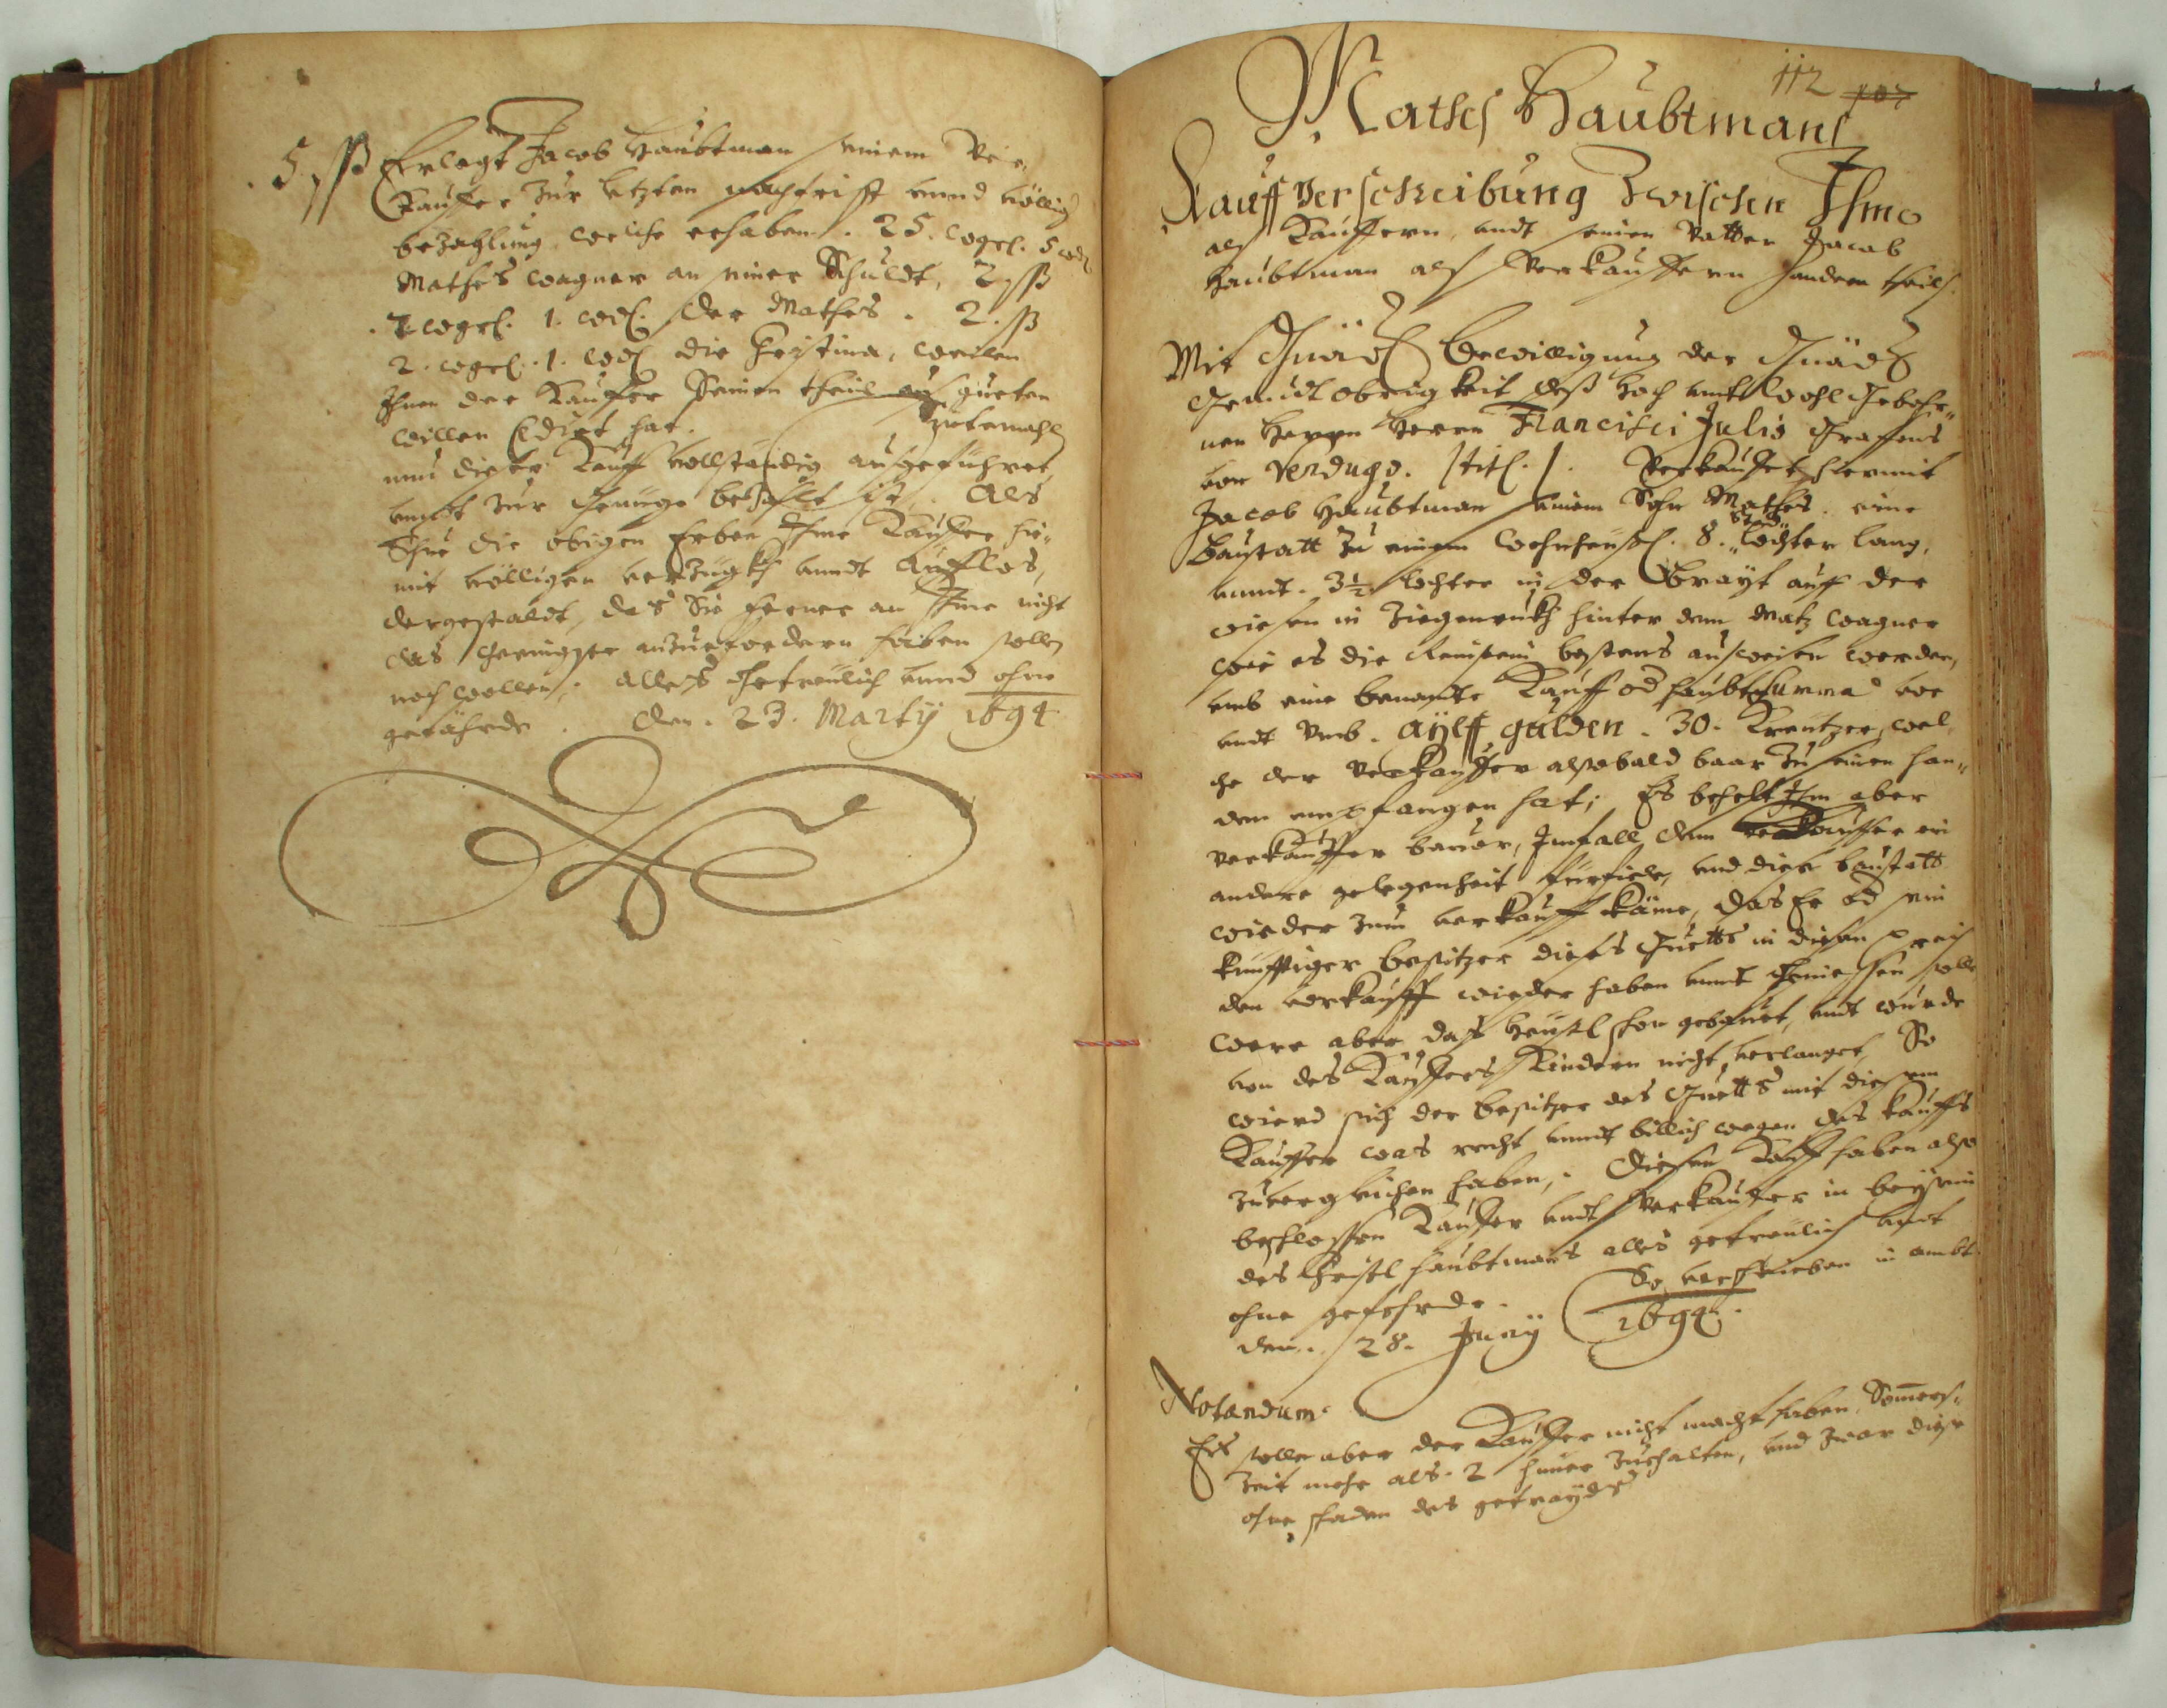 5 ß Erlegt Jacob Haubtman seinem Ver,
Kauffer zur letzten nachfrist unnd völlig
bezahlung, welche erhaben. 25. wgrl. 5 wd
Mathes Wagner an seiner Schuldt, 2 ß
7. wgrl. 1. wd. der Mathes. 2. ß
2. wgrl. 1. wd die Christina, weilen
Ihnen der Kauffer seinen theil aus gueten
willen Cedirt hat. zutemahl
nun dieser Kauff vollständig ausgeführet
unndt zur Genuge bezahlt ist. Als
Thue die obigen Erben Ihme Kauffer hie„
mit völligen verzugkh unndt Aufflos,
dergestaldt, das Sie ferner an Ihme nicht
das Geringste anzuefordern haben sollen
noch wollen; alles Getreulich unnd ohne
gefährde. Den. 23. Martÿ 1694
112 107
Mathes Haubtmans
Kauff Verschreibung Zwischen Ihme
als Kauffern, undt seinen Vatter Jacob
Haubtman als Verkauffern handern theils.
Mit Gnäd Bewilligung der Gnäd
Grundt obrigkeit deß Hoch undt Wohl Gebohr„
nen Herrn Herrn Francisci Julio Graffens
von Verdugo. /titl./. Verkauffet hiermit
Jacob Haubtman seinem Sohn Mathes. eine
Baustatt zu einem Wohnheusl. 8. lochter lang,
unndt. 3½ lochter in der Brayt auff der
wiesen in Ziegenruckh hinter dem Matz Wagner
wie es die Rainstein bestens ausweisen werden,
umb eine benante Kauff od haubtsumma vor
undt Umb. Aÿlff gulden. 30. Kreutzer, wel„
che der Verkauffer alsobald baar zu seinen han„
den empfangen hat; Es behelt Ihm aber
Verkauffer bevor, Imfall dem Kauffer ein
andere gelegenheit fürfiele, und diese baustatt
wieder zum verkauff käme, das Er od sein
kunfftiger besitzer dieses Guetts in diesen preis
den vorkauff wieder haben unndt geniessen solle
Were aber das Heusl schon gebauet, undt wurde
von des Kauffers Kindern nicht verlanget, So
wierd sich der besitzer des Guetts mit diesem
Kauffer was recht unndt billich wegen des Kauffs
zuvergleichen haben,. Diesen Kauff haben also
beschlossen Kauffer undt Verkauffer in beÿsein
des Christl Haubtmans alles getreulich undt
ohne gefehrde. So verschrieben in ambt
den. 28. Junÿ 1694.
Notandum.
Es solle aber der Kauffer nicht macht haben, Sommers„
Zeit mehr als. 2 hüner zuhalten, und zwar diese
ohne schaden des getraÿds